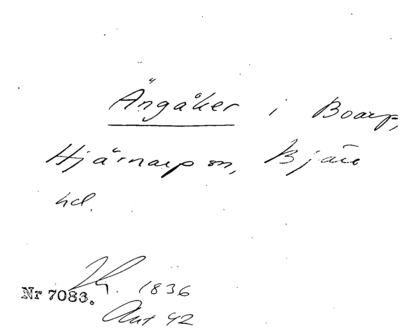 Ängåker i Boarp,
Hjärnarp sn, Bjäre
hd.
1836
Nr 7083.
Akt 42